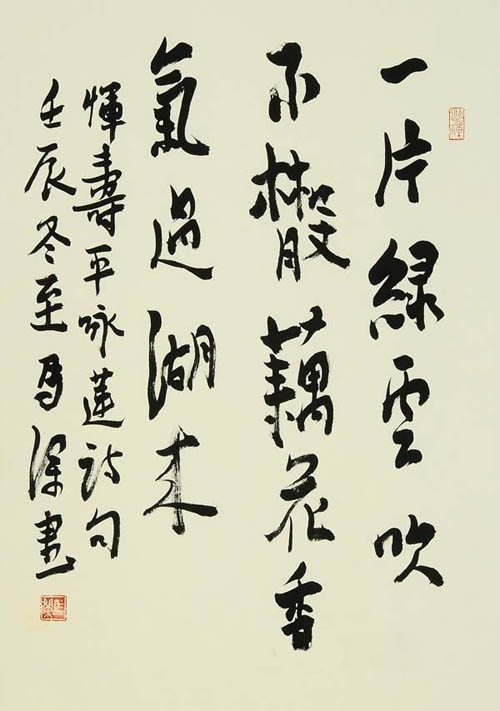 一片綠雲吹
不散藕花香
氣過湖來
惲壽平咏蓮詩句
壬辰冬至馬書